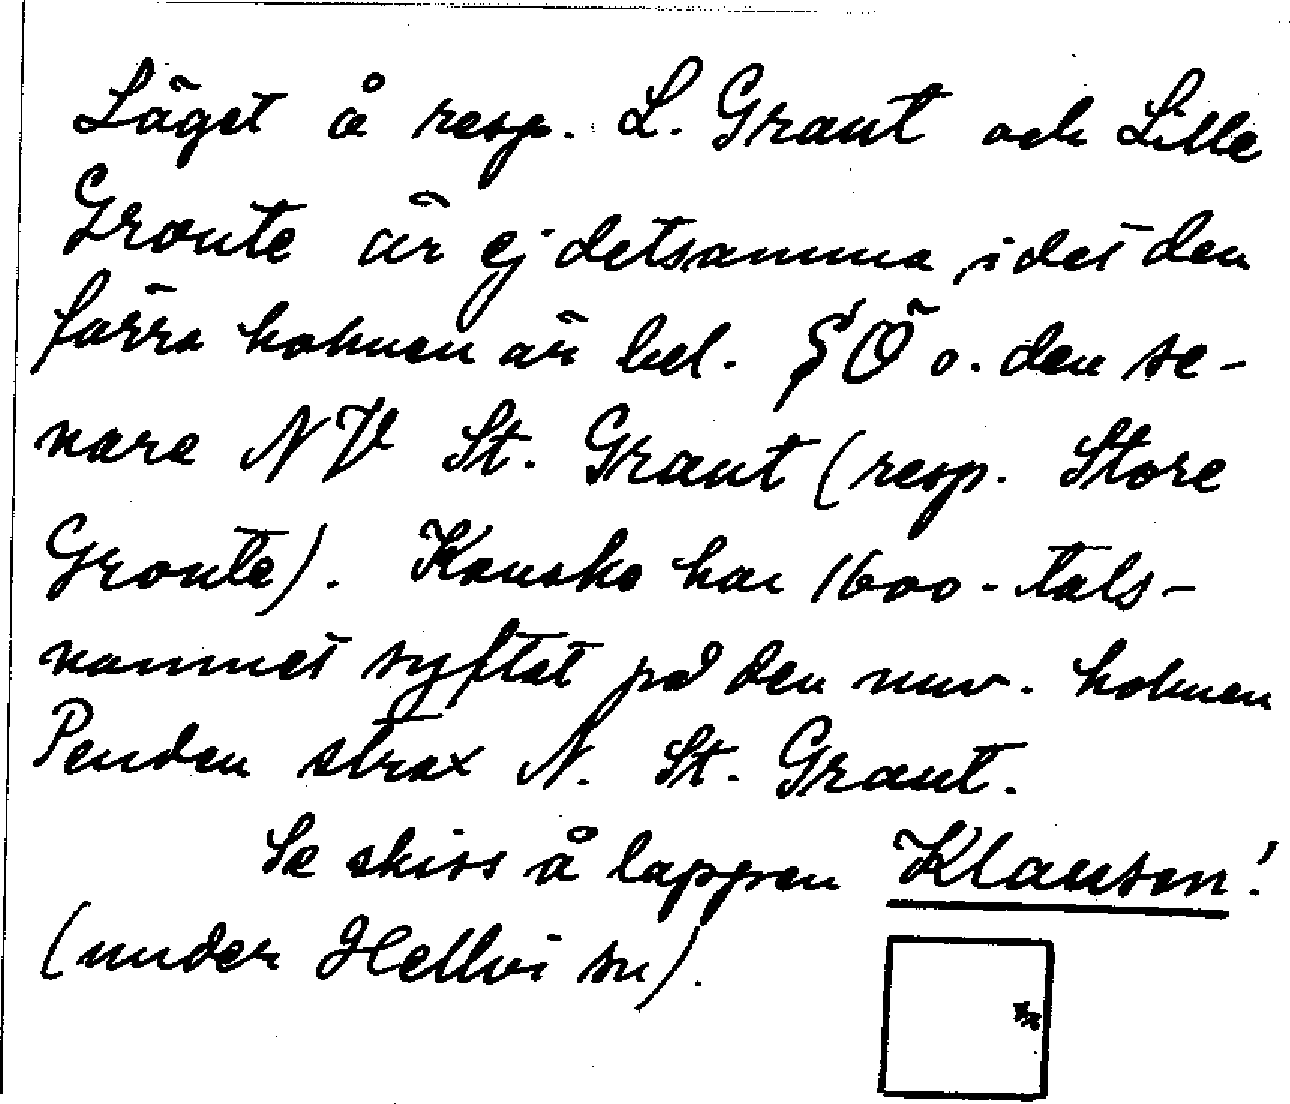 Läget å resp. L. Graut och Lille
Groute är ej detsamma, i det den
förra holmen är bel. SÖ o. den se-
nare NV St. Graut (resp. Store
Groute). Kanske har 1600-tals-
namnet syftat på den nuv. holmen
Penden strax N. St. Graut.
Se skiss å lappen Klausen!
(under Hellvi sn).